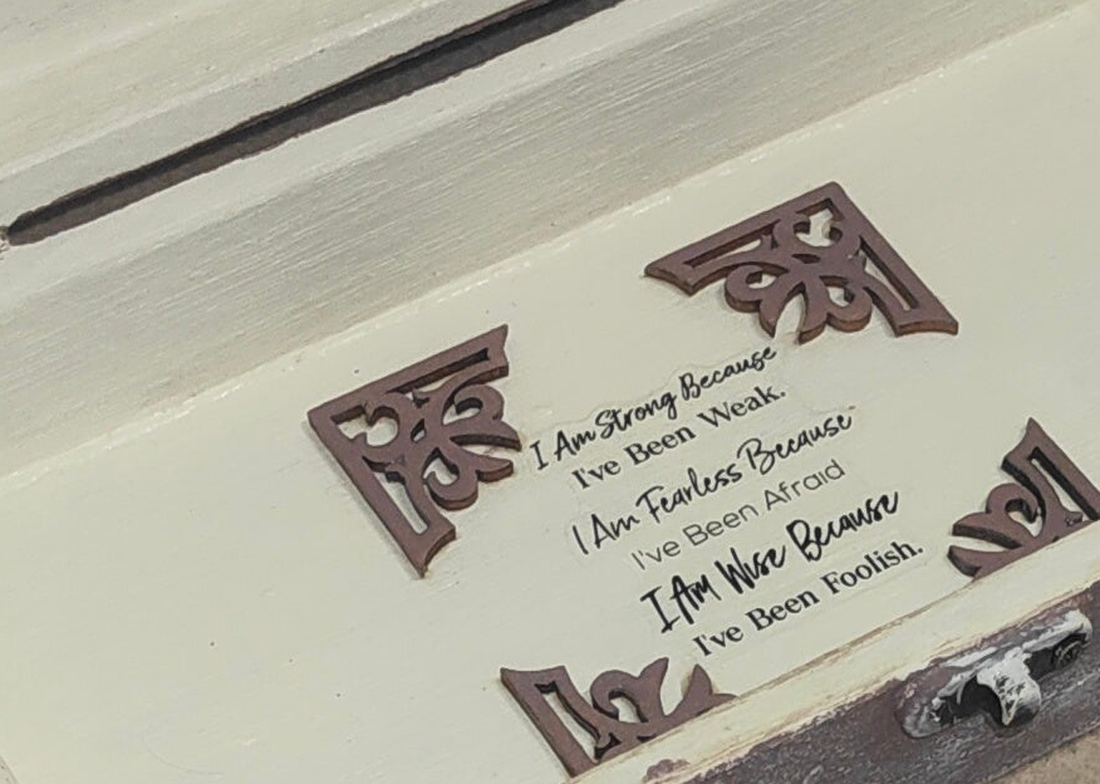 I Am Strong Because
I've Been Weak.
I Am Fearless Because
I've Been Afraid
I Am Wise Because
I've Been Foolish.